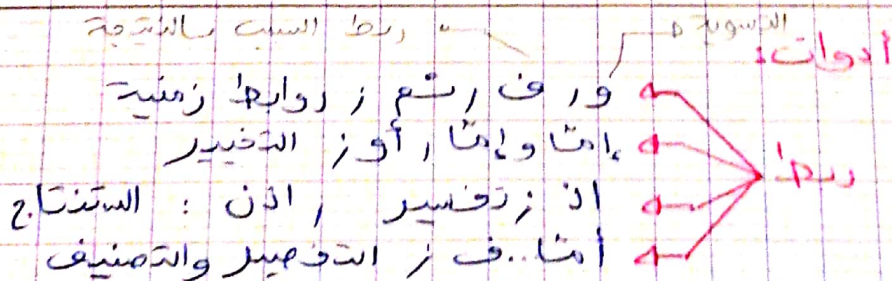 التسوية ربط السبب بالنتيجة
أدوات:
و، ف، ثم : روابط زمنية
ربط
إمّا وإمّا، أو : التخيير
إذ : تفسير، إذن : استنتاج
أمّا..ف : التفصيل والتصنيف